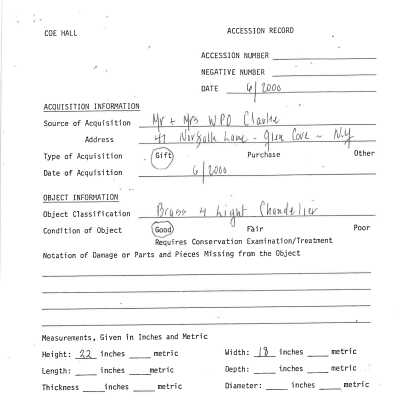 COE HALL ACCESSION RECORD
ACCESSION NUMBER
NEGATIVE NUMBER
DATE 6/2000
ACQUISITION INFORMATION
Source of Acquisition Mr + Mrs WPD Clarke
Address 47 Norfolk Lane - Glen Cove - N.Y
Type of Acquisition Gift Purchase Other
Date of Acquisition 6/2000
OBJECT INFORMATION
Object Classification Brass 4 Light Chandelier
Condition of Object Good Fair Poor
Requires Conservation Examination/Treatment
Notation of Damage or Parts and Pieces Missing from the Object
Measurements, Given in Inches and Metric
Height: 22 inches metric Width: 18 inches metric
Length: inches metric Depth: inches metric
Thickness inches metric Diameter: inches metric